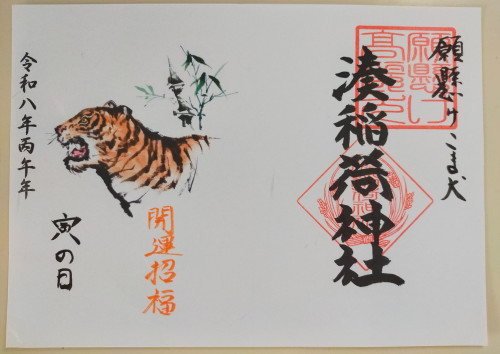 願懸け こま犬
湊稲荷神社
開運招福
寅の日
令和八年丙午年